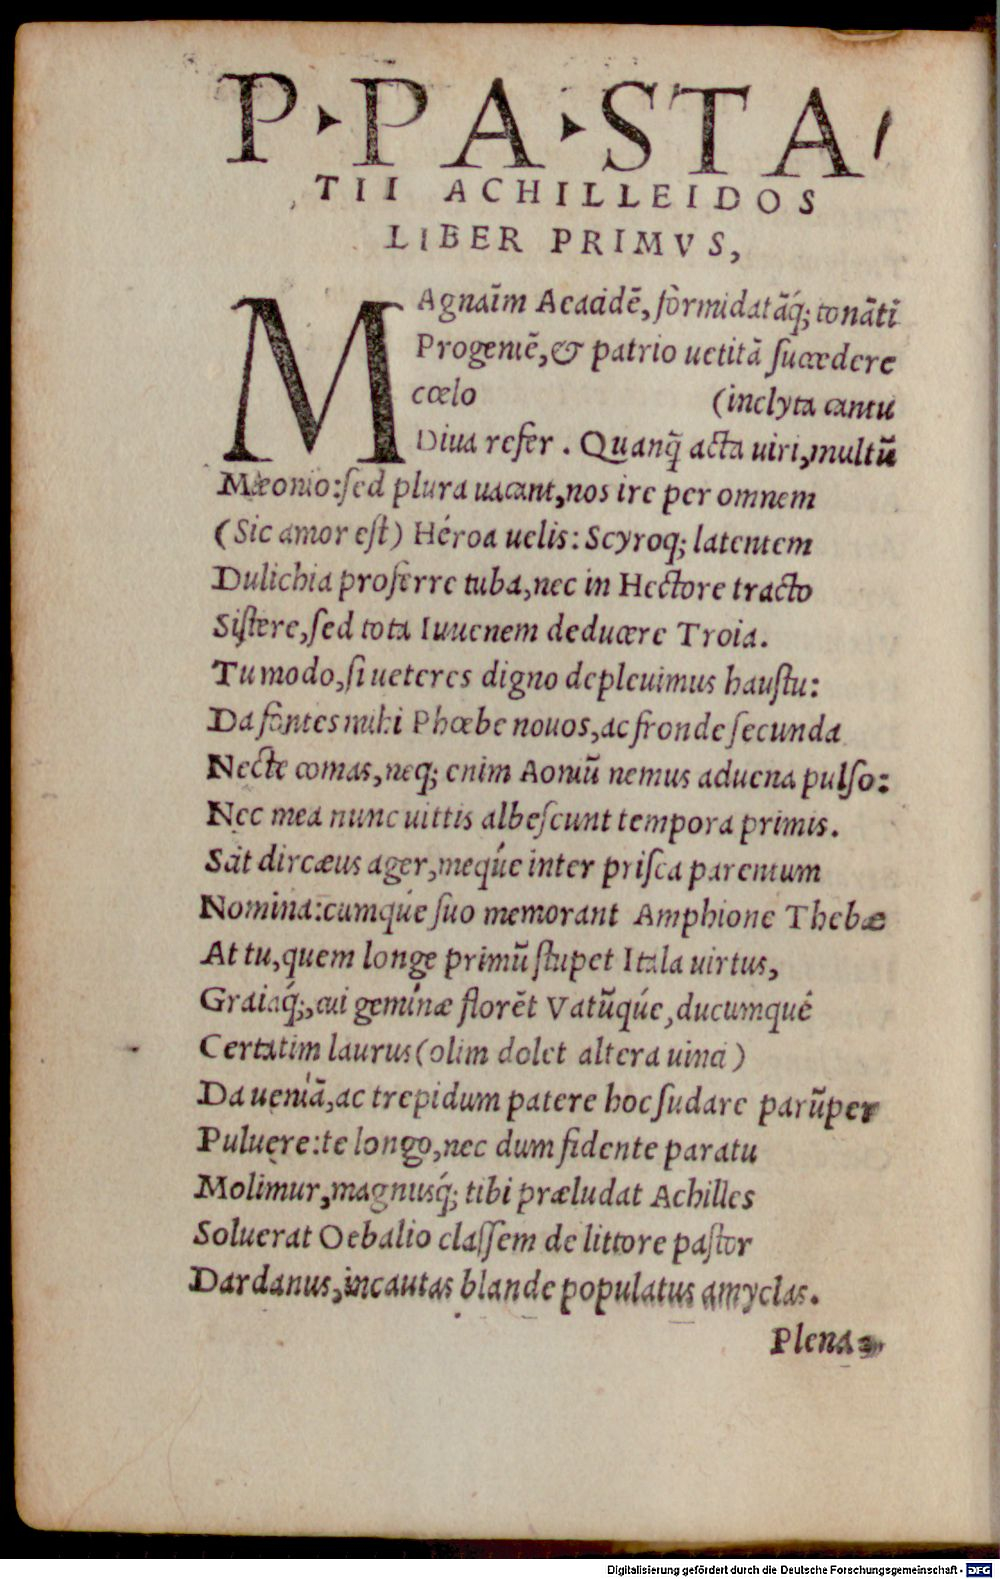 P▸PA▸STA/
TII ACHILLEIDOS
LIBER PRIMVS,
MAgnaĩm Aeacidẽ, formidatãq́; tonãti
Progeniẽ, & patrio uetitã succedere
cœlo (inclyta cantu
Diua refer. Quanq̃ acta uiri, multũ
Mæonio: sed plura uacant, nos ire per omnem
(Sic amor est) Héroa uelis: Scyroq; latentem
Dulichia proferre tuba, nec in Hectore tracto
Sistere, sed tota Iuuenem deducere Troia.
Tu modo, si ueteres digno depleuimus haustu:
Da fontes mihi Phœbe nouos, ac fronde secunda
Necte comas, neq; enim Aoniũ nemus aduena pulso:
Nec mea nunc uittis albescunt tempora primis.
Scit dircæus ager, meq́ue inter prisca parentum
Nomina: cumq́ue suo memorant Amphione Thebæ
At tu, quem longe primũ stupet Itala uirtus,
Graiaq́;, cui geminæ florẽt Vatũq́ue, ducumquê
Certatim laurus (olim dolet altera uinci)
Da ueniã, ac trepidum patere hoc sudare parũper
Puluere: te longo, nec dum fidente paratu
Molimur, magnusq́; tibi præludat Achilles
Soluerat Oebalio classem de littore pastor
Dardanus, incautas blande populatus amyclas.
Plena
Digitalisierung gefördert durch die Deutsche Forschungsgemeinschaft - DFG